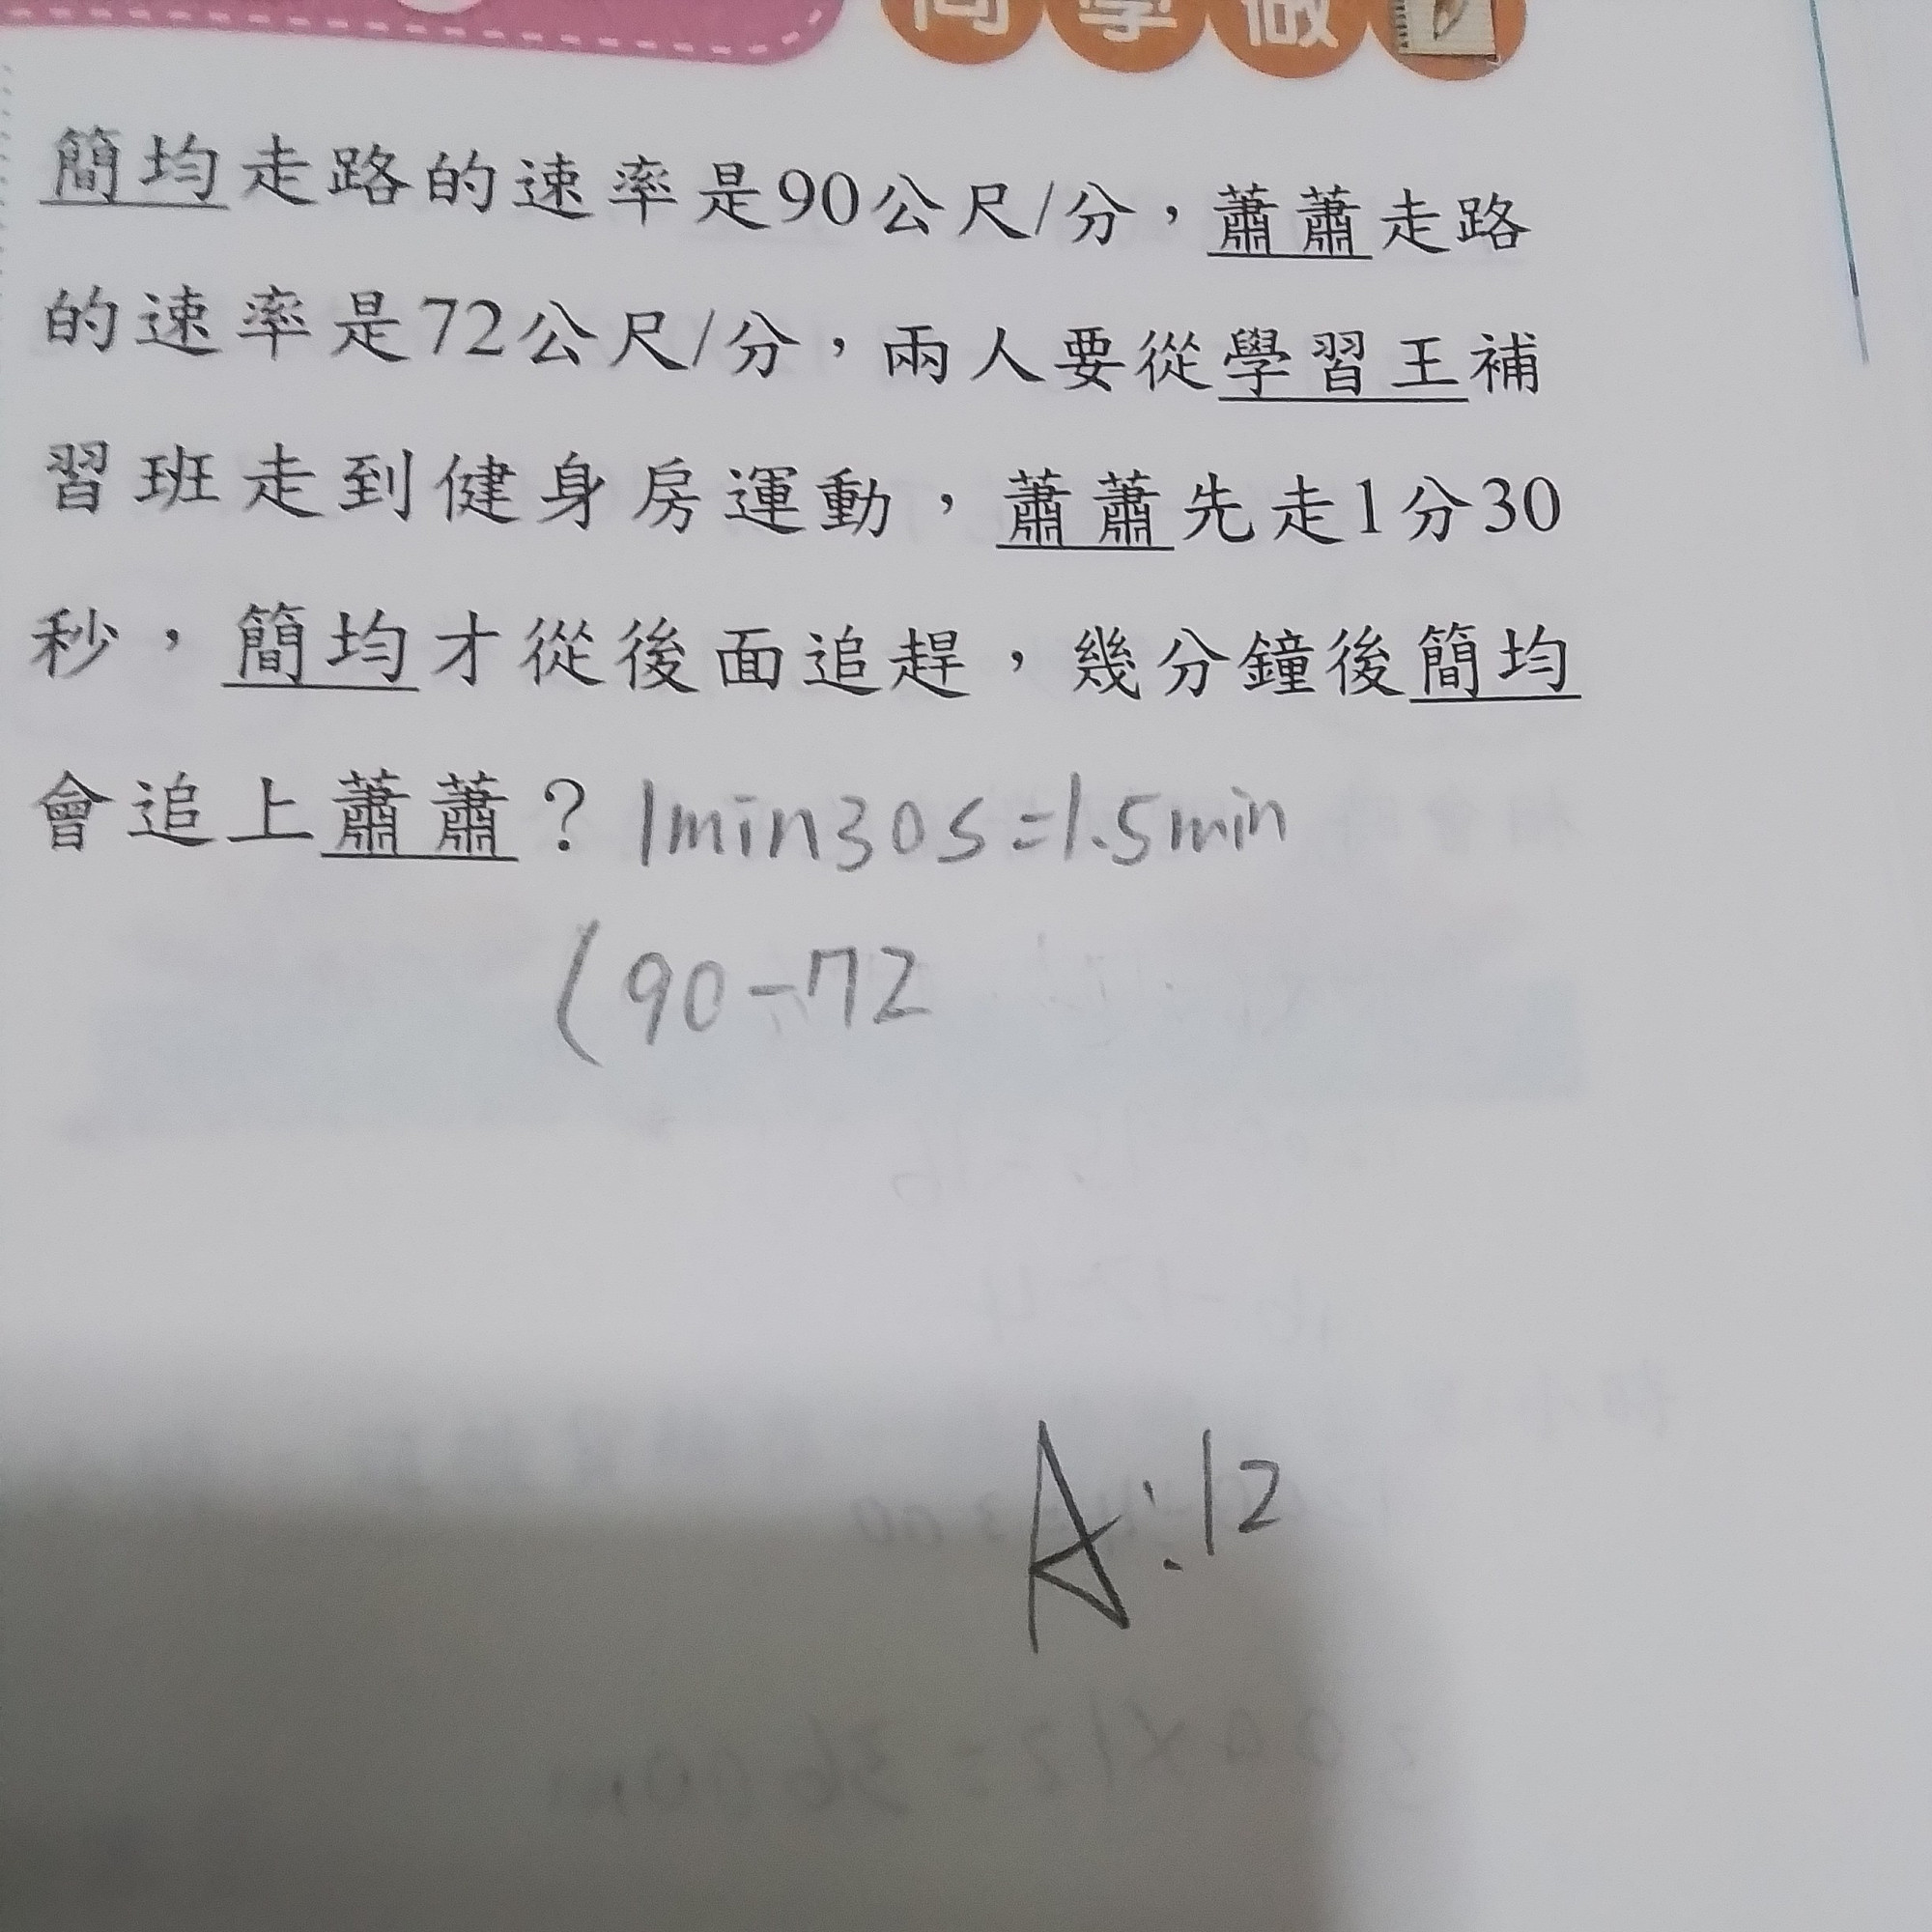 同學做
簡均走路的速率是90公尺/分，蕭蕭走路
的速率是72公尺/分，兩人要從學習王補
習班走到健身房運動，蕭蕭先走1分30
秒，簡均才從後面追趕，幾分鐘後簡均
會追上蕭蕭？1min30s=1.5min
(90-72
A:12